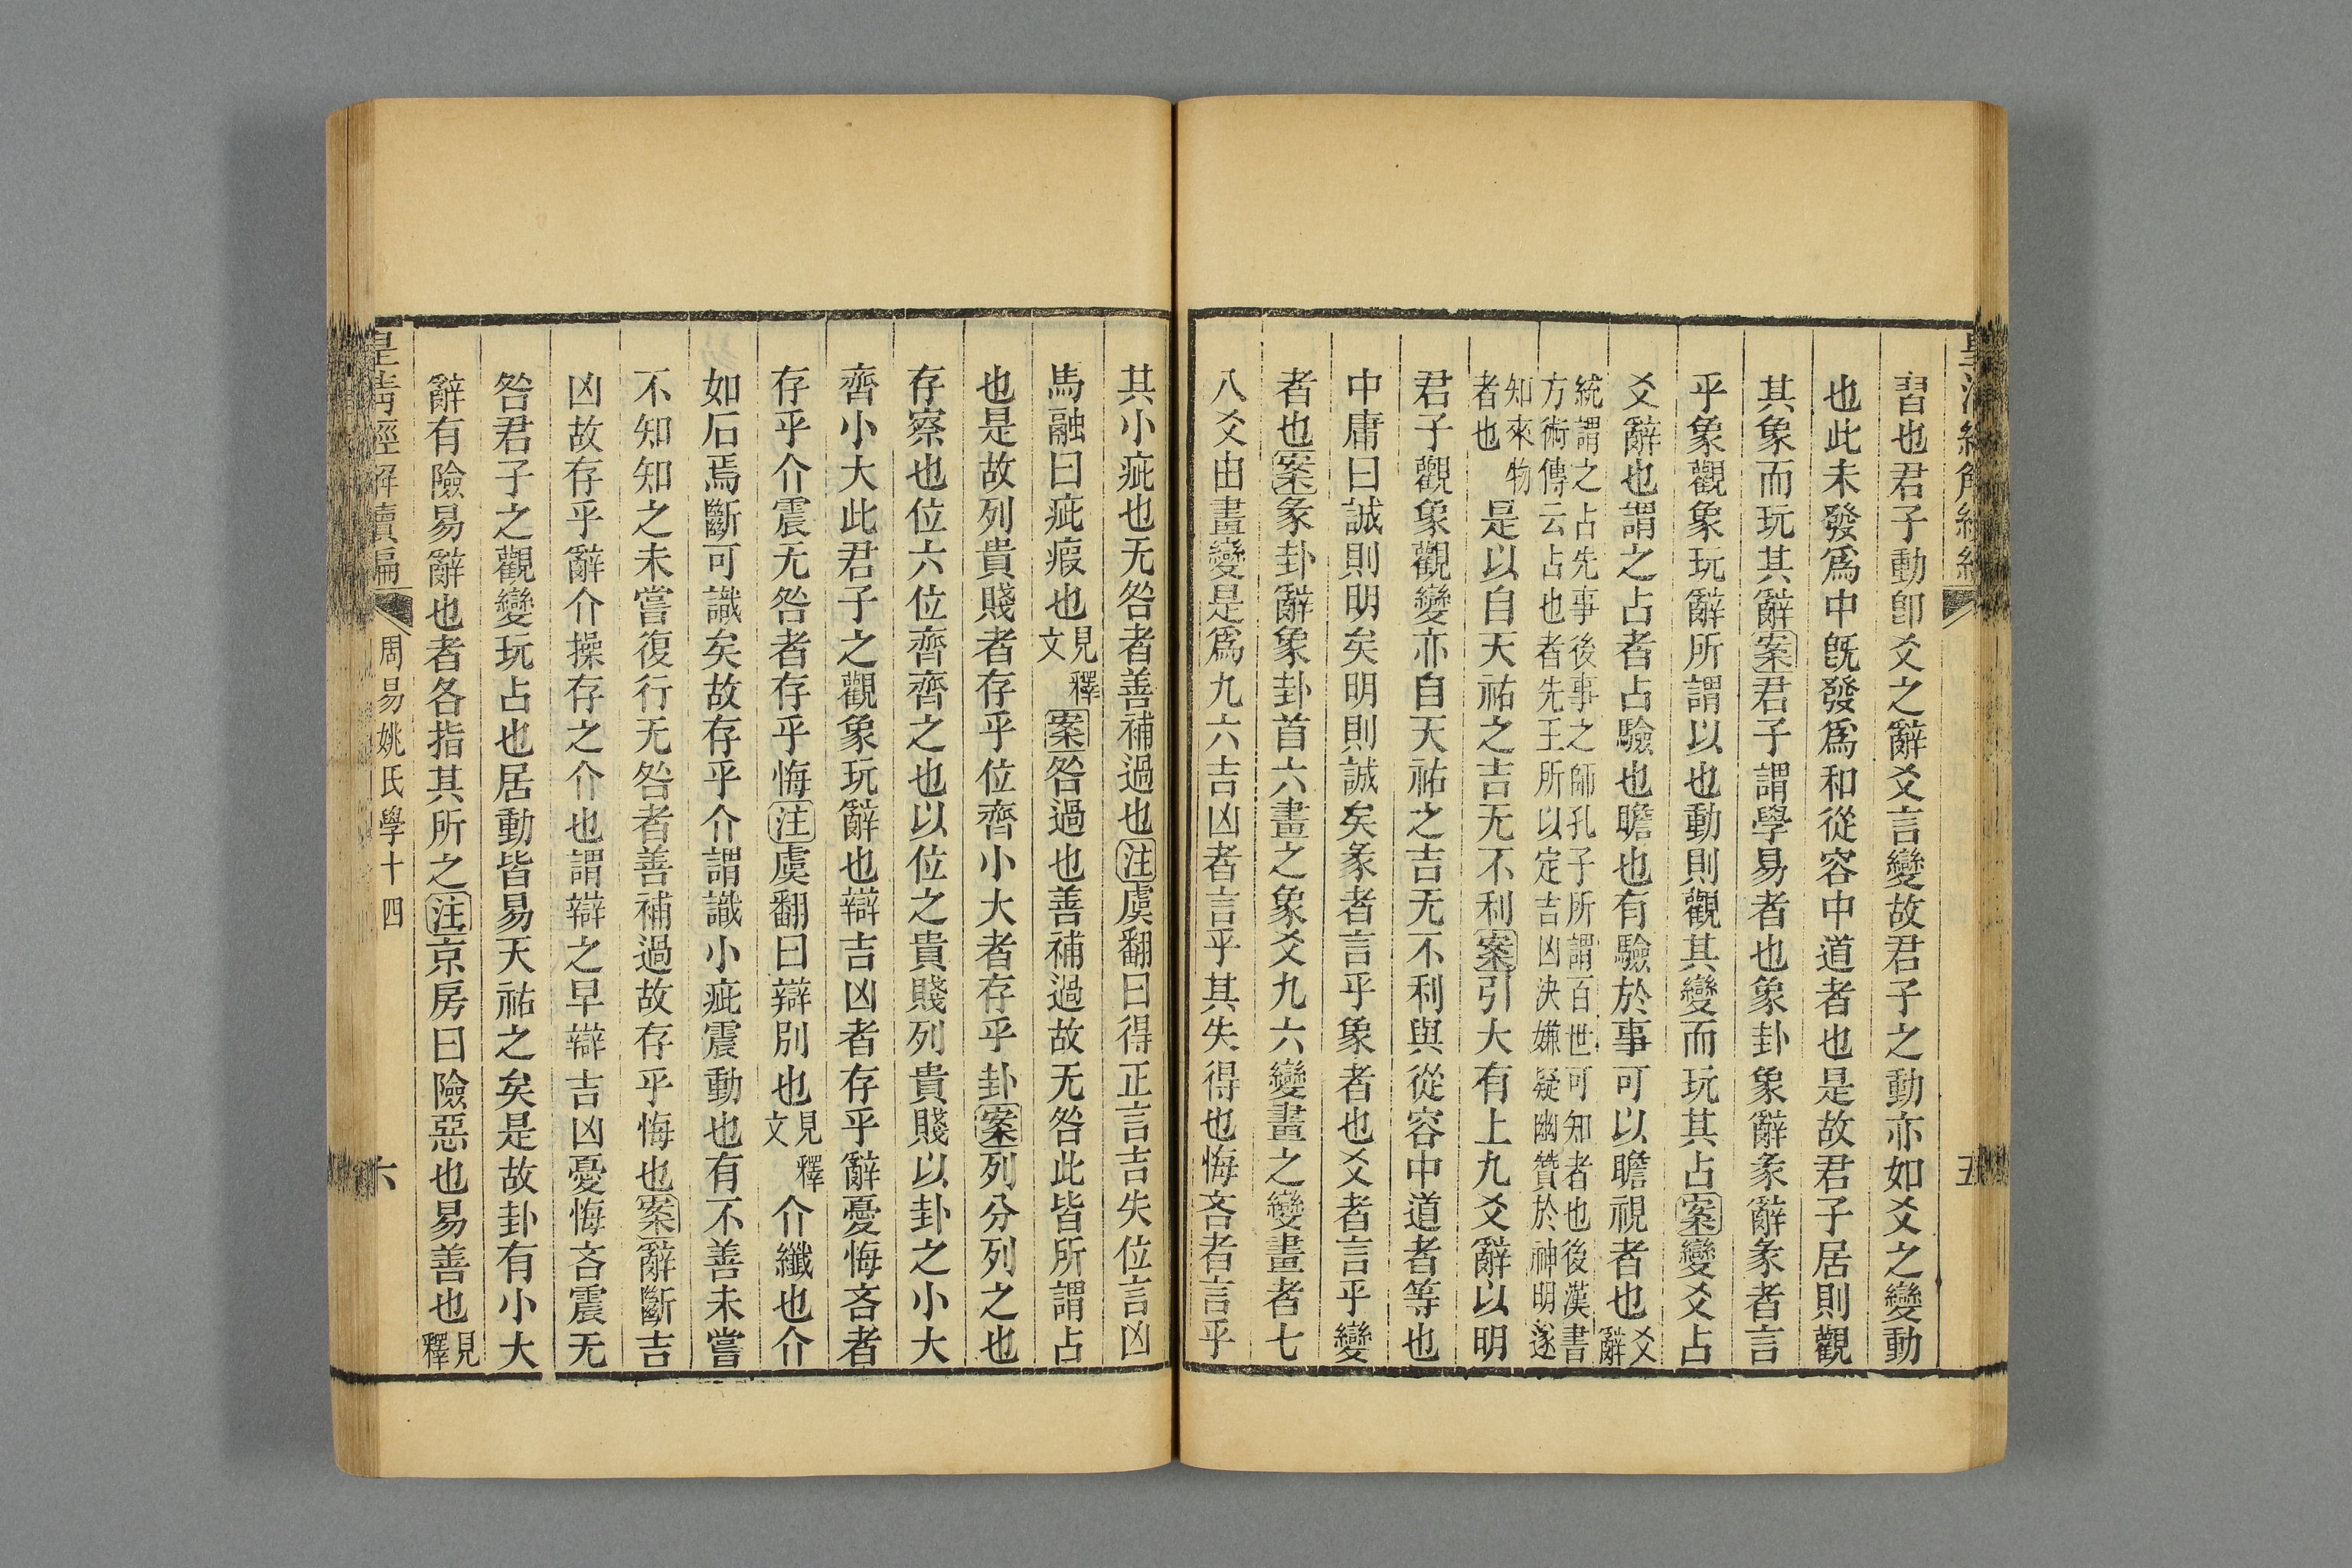 習也君子動卽爻之辭爻言變故君子之動亦如爻之變動
也此未發爲中旣發爲和從容中道者也是故君子居則觀
其象而玩其辭案君子謂學易者也象卦象辭彖辭彖者言
乎象觀象玩辭所謂以也動則觀其變而玩其占案變爻占
爻辭也謂之占者占驗也瞻也有驗於事可以瞻視者也爻辭
統謂之占先事後事之師孔子所謂百世可知者也後漢書
方術傳云占也者先王所以定吉凶決嫌疑幽贊於神明遂
知來物
者也
是以自天祐之吉无不利案引大有上九爻辭以明
君子觀象觀變亦自天祐之吉无不利與從容中道者等也
中庸曰誠則明矣明則誠矣彖者言乎象者也爻者言乎變
者也案彖卦辭象卦首六畫之象爻九六變畫之變畫者七
八爻由畫變是爲九六吉凶者言乎其失得也悔吝者言乎
其小疵也无咎者善補過也注虞翻曰得正言吉失位言凶
馬融曰疵瑕也見釋文案咎過也善補過故无咎此皆所謂占
也是故列貴賤者存乎位齊小大者存乎卦案列分列之也
存察也位六位齊齊之也以位之貴賤列貴賤以卦之小大
齊小大此君子之觀象玩辭也辯吉凶者存乎辭憂悔吝者
存乎介震无咎者存乎悔注虞翻曰辯別也見釋文介纖也介
如石焉斷可識矣故存乎介謂識小疵震動也有不善未嘗
不知知之未嘗復行无咎者善補過故存乎悔也案辭斷吉
凶故存乎辭介操存之介也謂辯之早辯吉凶憂悔吝震无
咎君子之觀變玩占也居動皆易天祐之矣是故卦有小大
辭有險易辭也者各指其所之注京房曰險惡也易善也見釋
皇清經解續編
周易姚氏學十四
六